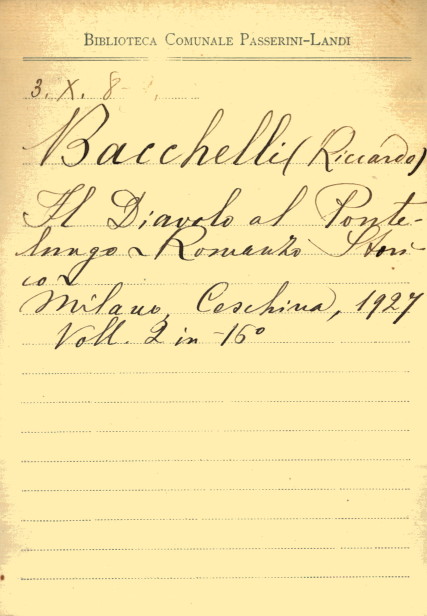 BIBLIOTECA COMUNALE PASSERINI-LANDI
3. X. 8
Bacchelli (Riccardo)
Il Diavolo al Ponte-
lungo - Romanzo Stori
co -
Milano, Ceschina, 1927
Voll. 2 in-16°